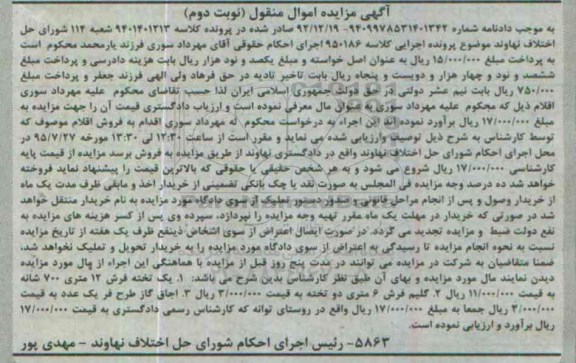 آگهی مزایده اموال منقول (نوبت دوم)
به موجب دادنامه شماره ۹۴۰۹۹۷۸۵۳۱۴۰۱۳۴۲- ۹۲/۱۲/۱۹ صادر شده در پرونده کلاسه ۹۴۰۱۴۰۱۲۱۳ شعبه ۱۱۴ شورای حل
اختلاف نهاوند موضوع پرونده اجرایی کلاسه ۹۵۰۱۸۶ اجرای احکام حقوقی آقای مهرداد سوری فرزند یارمحمد محکوم است
به پرداخت مبلغ ۱۵/۰۰۰/۰۰۰ ریال به عنوان اصل خواسته و مبلغ یکصد و نود هزار ریال بابت هزینه دادرسی و پرداخت مبلغ
ششصد و نود و چهار هزار و دویست و پنجاه ریال بابت تاخیر تادیه در حق فرهاد ولی الهی فرزند جعفر و پرداخت مبلغ
۷۵۰/۰۰۰ ریال بابت نیم عشر دولتی در حق دولت جمهوری اسلامی ایران لذا حسب تقاضای محکوم علیه مهرداد سوری
اقلام ذیل که محکوم علیه مهرداد سوری به عنوان مال معرفی نموده است و ارزیاب دادگستری قیمت آن را جهت مزایده به
مبلغ ۱۷/۰۰۰/۰۰۰ ریال برآورد نموده اند این اجراء به درخواست محکوم له مهرداد سوری اقدام به فروش اقلام موصوف که
توسط کارشناس به شرح ذیل توصیف وارزیابی شده می نماید و مقرر است از ساعت ۱۲:۳۰ الی ۱۳:۳۰ مورخه ۹۵/۷/۲۷ در
محل اجرای احکام شورای حل اختلاف نهاوند واقع در دادگستری نهاوند از طریق مزایده به فروش برسد مزایده از قیمت پایه
کارشناسی ۱۷/۰۰۰/۰۰۰ ریال شروع می شود و به هر شخص حقیقی یا حقوقی که بالاترین قیمت را پیشنهاد نماید فروخته
خواهد شد ده درصد وجه مزایده فی المجلس به صورت نقد یا چک بانکی تضمینی از خریدار اخذ و مابقی ظرف مدت یک ماه
از خریدار وصول و پس از انجام مراحل قانونی و صدور دستور تملیک از سوی دادگاه مورد مزایده به نام خریدار منتقل خواهد
شد در صورتی که خریدار در مهلت یک ماه مقرر تهیه وجه مزایده را نپردازد، سپرده وی پس از کسر هزینه های مزایده به
نفع دولت ضبط و مزایده تجدید می گردد. در صورت ایصال اعتراض از سوی اشخاص ذینفع ظرف یک هفته از تاریخ مزایده
نسبت به نحوه انجام مزایده تا رسیدگی به اعتراض از سوی دادگاه مورد مزایده را به خریدار تحویل و تملیک نخواهد شد.
ضمنا متقاضیان به شرکت در مزایده می توانند در مدت پنج روز قبل از مزایده با هماهنگی این اجراء از مال مورد مزایده
دیدن نمایند مال مورد مزایده و بهای آن طبق نظر کارشناس بدین شرح می باشد: ۱. یک تخته فرش ۱۲ متری ۷۰۰ شانه
به قیمت ۱۱/۰۰۰/۰۰۰ ریال ۲. گلیم فرش ۶ متری دو تخته به قیمت ۳/۰۰۰/۰۰۰ ریال ۳. اجاق گاز طرح فر یک عدد به قیمت
۳/۰۰۰/۰۰۰ ریال جمعا به مبلغ ۱۷/۰۰۰/۰۰۰ ریال واقع در روستای توانه که کارشناس رسمی دادگستری به قیمت ۱۷/۰۰۰/۰۰۰
ریال برآورد و ارزیابی نموده است.
۵۸۶۳- رئیس اجرای احکام شورای حل اختلاف نهاوند - مهدی پور